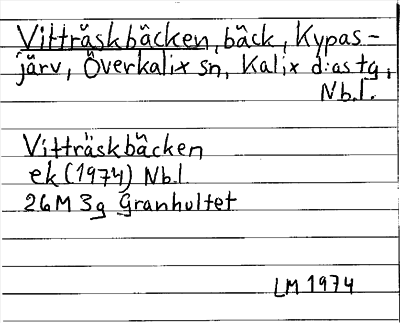 Vitträskbäcken, bäck, Kypas-
järv, Överkalix sn, Kalix d:as tg,
Nb.l.
Vitträskbäcken
ek (1974) Nb.l
26M 3g Granhultet
LM 1974